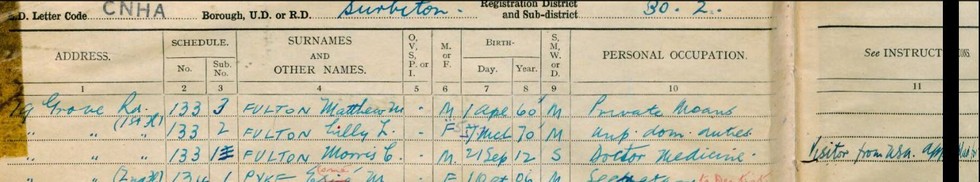 D. Letter Code CNHA Borough, U.D. or R.D. Surbiton. Registration District and Sub-district 30. 2.
ADDRESS. SCHEDULE. No. Sub. No. SURNAMES AND OTHER NAMES. O, V, S, P, or I. M. or F. BIRTH- Day. Year. S, M, W, or D. PERSONAL OCCUPATION. See INSTRUCT
1 2 3 4 5 6 7 8 9 10 11
Grove Rd. 133 3 FULTON Matthew M - M 1 Apl 60 M Private Means
" " (1st fl) 133 2 FULTON Lilly L. - F 7 Mch 70 M unp. dom. duties
" " 133 1 FULTON Morris C. - M. 21 Sep 12 S Doctor Medicine. Visitor from U.S.A.
" " (2nd fl) 134 1 PYKE M. - F 1 Oct 06 M